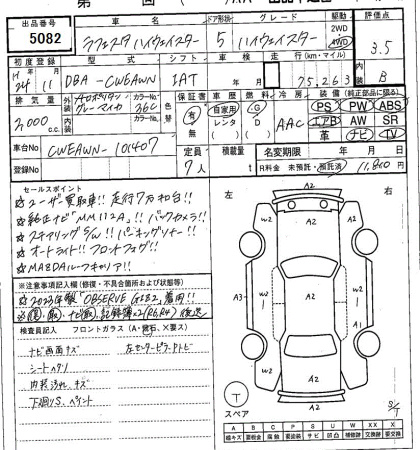 出品番号
5082
車名
ラフェスタハイウェイスター
ドア形状
5
グレード
ハイウェイスター
駆動
2WD
4WD
評価点
3.5
初度登録
H 24年 11月
型式
DBA - CWEAWN
シフト
IAT
車検
年 月
走行(km・マイル)
75,263
内装
B
排気量
2,000 c.c.
外装
メトロポリタングレーマイカ
カラーNo.
36C
内装
カラーNo.
色替
保証書
有
無
車歴
自家用
レンタ
燃料
G
D
冷房
AAC
装備(純正部品に限る)
PS PW ABS
エアB AW SR
革 ナビ TV
車台No
CWEAWN-101407
登録No
定員
7人
積載量
名変期限 年 月 日
R料金 未預託・預託済 11,860円
セールスポイント
☆ユーザー買取車!! 走行7万キロ台!!
☆純正ナビ"MM112A"!! バックカメラ!!
☆ステアリングS/W!! パーキングソナー!!
☆オートライト!! フロントフォグ!!
☆MAZDAルーフキャリア!!
※注意事項記入欄(修復・不具合箇所および状態等)
2023年製"OBSERVE GIZ2"着用!!
検査員記入
フロントガラス(A・飛石、X要ス)
ナビ画面キズ
シートヘタリ
内装汚れ、キズ
下廻りS、ペイント
左センターピラーアトビ
左
右
A2
A2
W2
W2
A2
A3
W2
W2
A2
W2
W2
A2
T
スペア
S/T
A B C P S U W X XX
線キズ 要板金 腐食 要塗装 サビ 凹凸 補修跡 交換跡 要交換